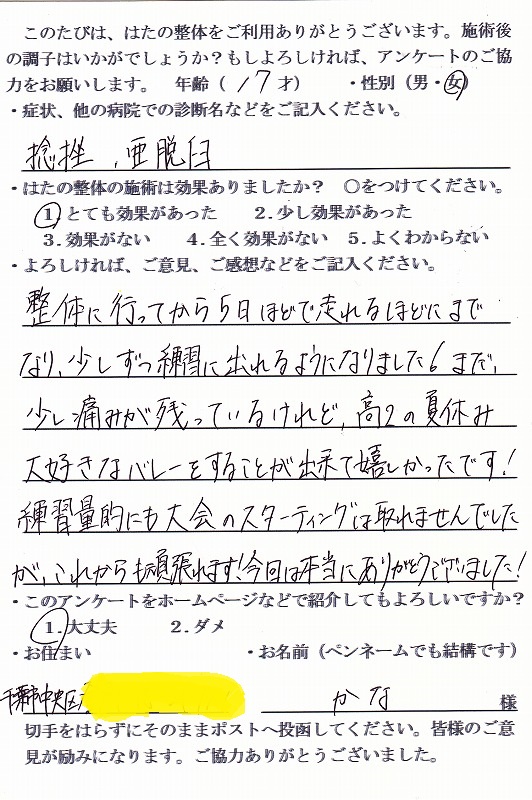 このたびは、はたの整体をご利用ありがとうございます。施術後
の調子はいかがでしょうか？もしよろしければ、アンケートのご協
力をお願いします。　年齢（ 17 才）　・性別（男・女）
・症状、他の病院での診断名などをご記入ください。
捻挫、亜脱臼
・はたの整体の施術は効果ありましたか？　〇をつけてください。
1.とても効果があった　2.少し効果があった
3.効果がない　4.全く効果がない　5.よくわからない
・よろしければ、ご意見、ご感想などをご記入ください。
整体に行ってから5日ほどで走れるほどにまで
なり、少しずつ練習に出れるようになりました。まだ、
少し痛みが残っているけれど、高2の夏休み
大好きなバレーをすることが出来て嬉しかったです！
練習量的にも大会のスターティングは取れませんでした
が、これからも頑張れます！今回は本当にありがとうございました！
・このアンケートをホームページなどで紹介してもよろしいですか？
1.大丈夫　2.ダメ
・お住まい　・お名前（ペンネームでも結構です）
千葉市中央区　かな　様
切手をはらずにそのままポストへ投函してください。皆様のご意
見が励みになります。ご協力ありがとうございました。